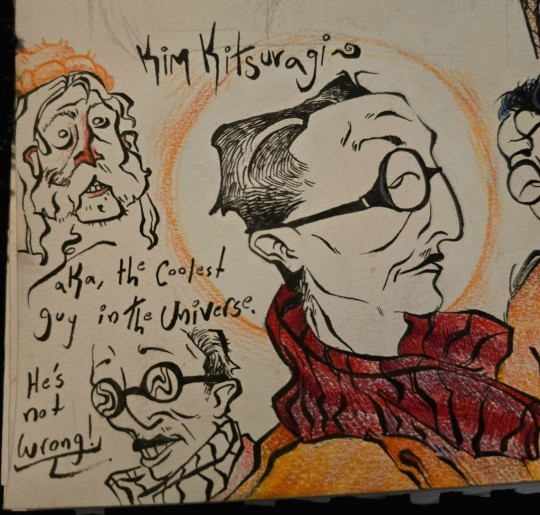 Kim Kitsuragi
aka, the Coolest
guy in the Universe.
He's
not
wrong!